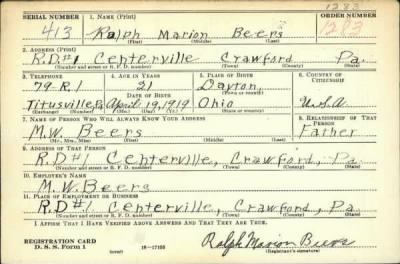 1283
SERIAL NUMBER 1. NAME (Print) ORDER NUMBER
413 Ralph Marion Beers 1283
(First) (Middle) (Last)
2. ADDRESS (Print)
R.D.#1 Centerville Crawford Pa.
(Number and street or R. F. D. number) (Town) (County) (State)
3. TELEPHONE 4. AGE IN YEARS 5. PLACE OF BIRTH 6. COUNTRY OF CITIZENSHIP
79-R1 21 Dayton,
DATE OF BIRTH (Town or county)
Titusville Pa April 19, 1919 Ohio U.S.A
(Exchange) (Number) (Mo.) (Day) (Yr.) (State or country)
7. NAME OF PERSON WHO WILL ALWAYS KNOW YOUR ADDRESS 8. RELATIONSHIP OF THAT PERSON
M.W. Beers Father
(Mr., Mrs., Miss) (First) (Middle) (Last)
9. ADDRESS OF THAT PERSON
R.D#1 Centerville, Crawford, Pa.
(Number and street or R. F. D. number) (Town) (County) (State)
10. EMPLOYER'S NAME
M.W. Beers
11. PLACE OF EMPLOYMENT OR BUSINESS
R.D.#1. Centerville, Crawford, Pa.
(Number and street or R. F. D. number) (Town) (County) (State)
I AFFIRM THAT I HAVE VERIFIED ABOVE ANSWERS AND THAT THEY ARE TRUE.
REGISTRATION CARD
D. S. S. Form 1 (over) 16-17105 Ralph Marion Beers
(Registrant's signature)